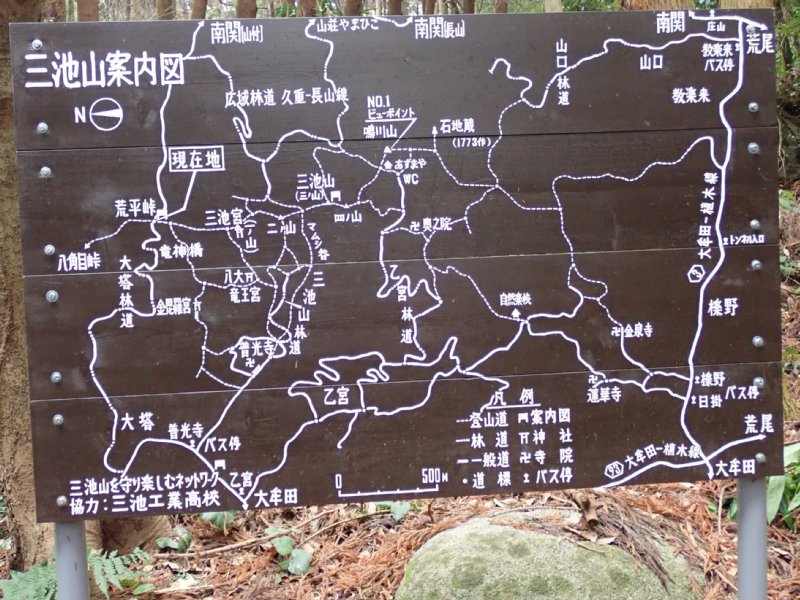 三池山案内図
N
南関(山付)
南関
山荘やまびこ
南関(長山)
南関
庄山
荒尾
教楽来
バス停
山口
山口林道
教楽来
広域林道 久重-長山線
NO.1
ビューポイント
鳴川山
石地蔵
(1773作)
あずまや
WC
現在地
三池山
(三ノ山)
荒平峠
三池宮
一ノ山
二ノ山
四ノ山
奥ノ院
マムシ谷
大牟田-植木線
トンネル入口
八角目峠
竜神橋
大塔林道
八大
竜王宮
金毘羅宮
三池山林道
乙宮林道
自然楽校
93
櫟野
金泉寺
普光寺
乙宮
道草寺
櫟野
日掛
バス停
凡例
登山道
案内図
林道
神社
一般道
寺院
道標
バス停
荒尾
93
大牟田-植木線
大牟田
大塔
普光寺
バス停
乙宮
大牟田
0
500M
三池山を守り楽しむネットワーク
協力:三池工業高校